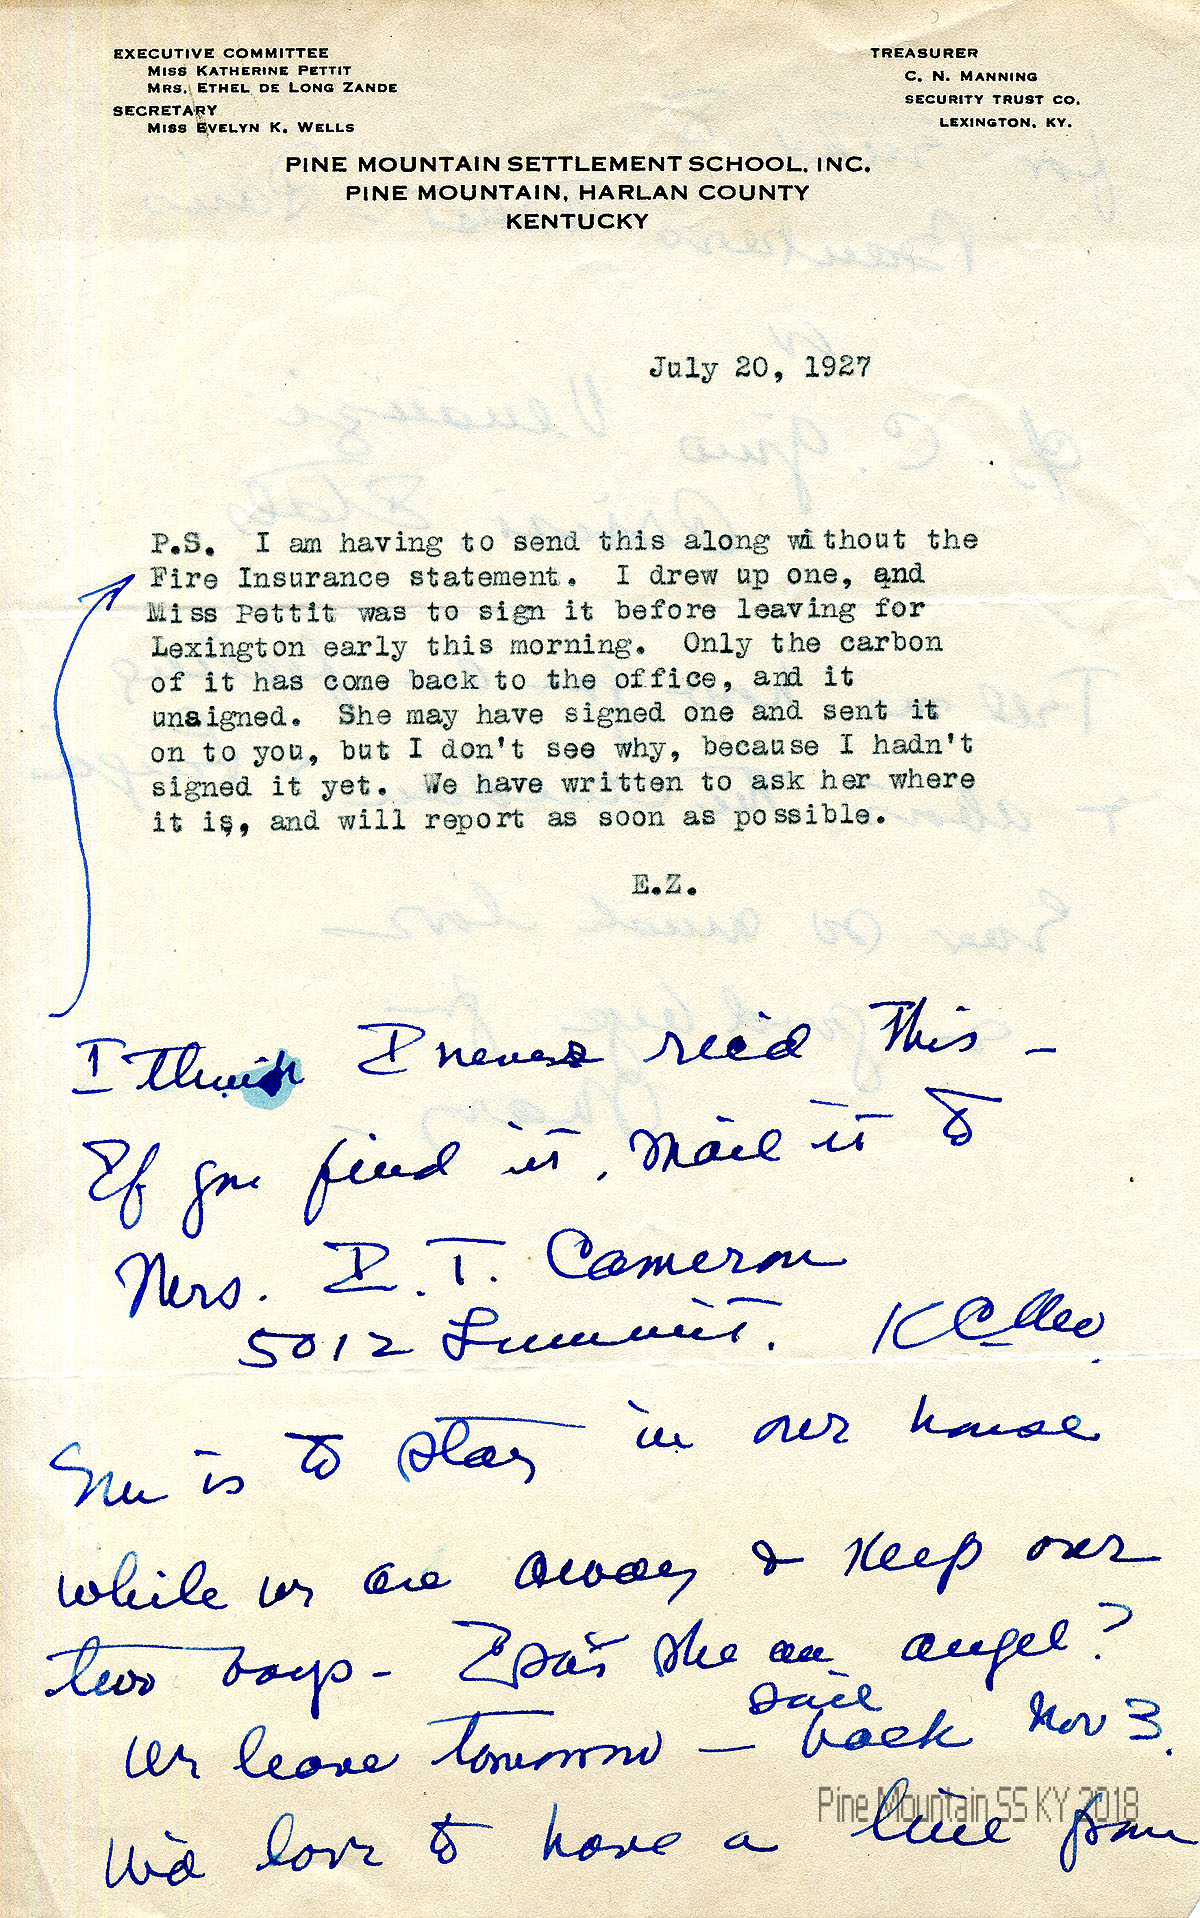 EXECUTIVE COMMITTEE
MISS KATHERINE PETTIT
MRS. ETHEL DE LONG ZANDE
SECRETARY
MISS EVELYN K. WELLS
TREASURER
C. N. MANNING
SECURITY TRUST CO.
LEXINGTON, KY.
PINE MOUNTAIN SETTLEMENT SCHOOL, INC.
PINE MOUNTAIN, HARLAN COUNTY
KENTUCKY
July 20, 1927
P.S. I am having to send this along without the
Fire Insurance statement. I drew up one, and
Miss Pettit was to sign it before leaving for
Lexington early this morning. Only the carbon
of it has come back to the office, and it
unsigned. She may have signed one and sent it
on to you, but I don't see why, because I hadn't
signed it yet. We have written to ask her where
it is, and will report as soon as possible.
E.Z.
I think I never rec'd this —
If you find it, mail it to
Mrs. I. T. Cameron
5012 Summit. K C Mo.
She is to stay in our house
while we are away & keep our
two boys - Isn't she an angel?
We leave tomorrow — sail back Nov 3.
We'd love to have a line from
Pine Mountain SS KY 2018